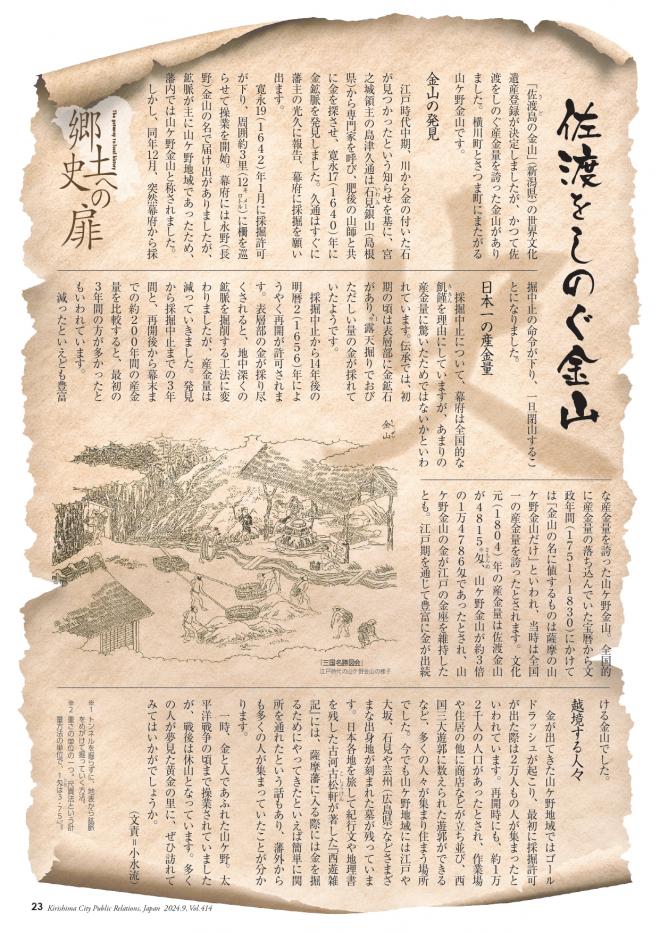 佐渡をしのぐ金山
「佐渡島の金山」(新潟県)の世界文化
遺産登録が決定しましたが、かつて佐
渡をしのぐ産金量を誇った金山があり
ました。横川町とさつま町にまたがる
山ケ野金山です。
金山の発見
江戸時代中期、川から金の付いた石
が見つかったという知らせを基に、宮
之城領主の島津久通は石見銀山(島根
県)から専門家を呼び、肥後の山師と共
に金を探させ、寛永17(1640)年に
金鉱脈を発見しました。久通はすぐに
藩主の光久に報告、幕府に採掘を願い
出ます。
寛永19(1642)年1月に採掘許可
が下り、周囲約3里(12㌔㍍)に柵を巡
らせて操業を開始。幕府には永野(長
野)金山の名で届け出がありましたが、
鉱脈が主に山ケ野地域であったため、
藩内では山ケ野金山と称されました。
しかし、同年12月、突然幕府から採
The gateway to local history
郷土史への扉
掘中止の命令が下り、一旦閉山するこ
とになりました。
日本一の産金量
採掘中止について、幕府は全国的な
飢饉を理由にしていますが、あまりの
産金量に驚いたためではないかといわ
れています。伝承では、初
期の頃は表層部に金鉱石
があり、露天掘りでおび
ただしい量の金が採れて
いたようです。
採掘中止から14年後の
明暦2(1656)年によ
うやく再開が許可されま
す。表層部の金が採り尽
くされると、地中深くの
鉱脈を掘削する工法に変
わりましたが、産金量は
減っていきました。発見
から採掘中止までの3年
間と、再開後から幕末ま
での約200年間の産金
量を比較すると、最初の
3年間の方が多かったと
もいわれています。
減ったといえども豊富
金山
『三国名勝図会』
江戸時代の山ケ野金山の様子
な産金量を誇った山ケ野金山。全国的
に産金量の落ち込んでいた宝暦から文
政年間(1751～1830)にかけて
「金山の名に値するものは薩摩の山
ケ野金山だけ」といわれ、当時は全国
一の産金量を誇ったとされます。文化
元(1804)年の産金量は佐渡金山
が4815匁、山ケ野金山が約3倍
の1万4786匁であったとされ、山
ケ野金山の金が江戸の金座を維持した
とも。江戸期を通じて豊富に金が出続
ける金山でした。
越境する人々
金が出てきた山ケ野地域ではゴール
ドラッシュが起こり、最初に採掘許可
が出た際は2万人もの人が集まったと
いわれています。再開時にも、約1万
2千人の人口があったとされ、作業場
や住居の他に商店などが立ち並び、西
国三大遊郭に数えられた遊郭ができる
など、多くの人々が集まり住まう場所
でした。今でも山ケ野地域には江戸や
大坂、石見や芸州(広島県)などさまざ
まな出身地が刻まれた墓が残っていま
す。日本各地を旅して紀行文や地理書
を残した古河古松軒が著した『西遊雑
記』には、薩摩藩に入る際には金を掘
るためにやってきたといえば簡単に関
所を通れたという話もあり、藩外から
も多くの人が集まっていたことが分か
ります。
一時、金と人であふれた山ケ野。太
平洋戦争の頃まで操業されていました
が、戦後は休山となっています。多く
の人が夢見た黄金の里に、ぜひ訪れて
みてはいかがでしょうか。
(文責＝小水流)
※1 トンネルを掘らずに、地表から鉱脈
をめがけて掘っていく方法。
※2 重さの単位の一つ。尺貫法という計
量方法の単位で、1匁は3・75㌘。
23 Kirishima City Public Relations, Japan 2024.9, Vol.414